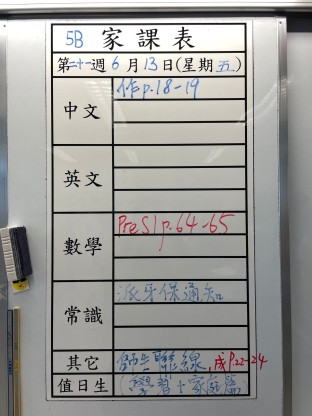 5B 家課表
第二十一週6月13日(星期五)
中文
作p.18-19
英文
數學
Pre S1 p.64-65
常識
派牙保通知
其它
師生聯線,成P.22-24
值日生
(學習+家庭篇)